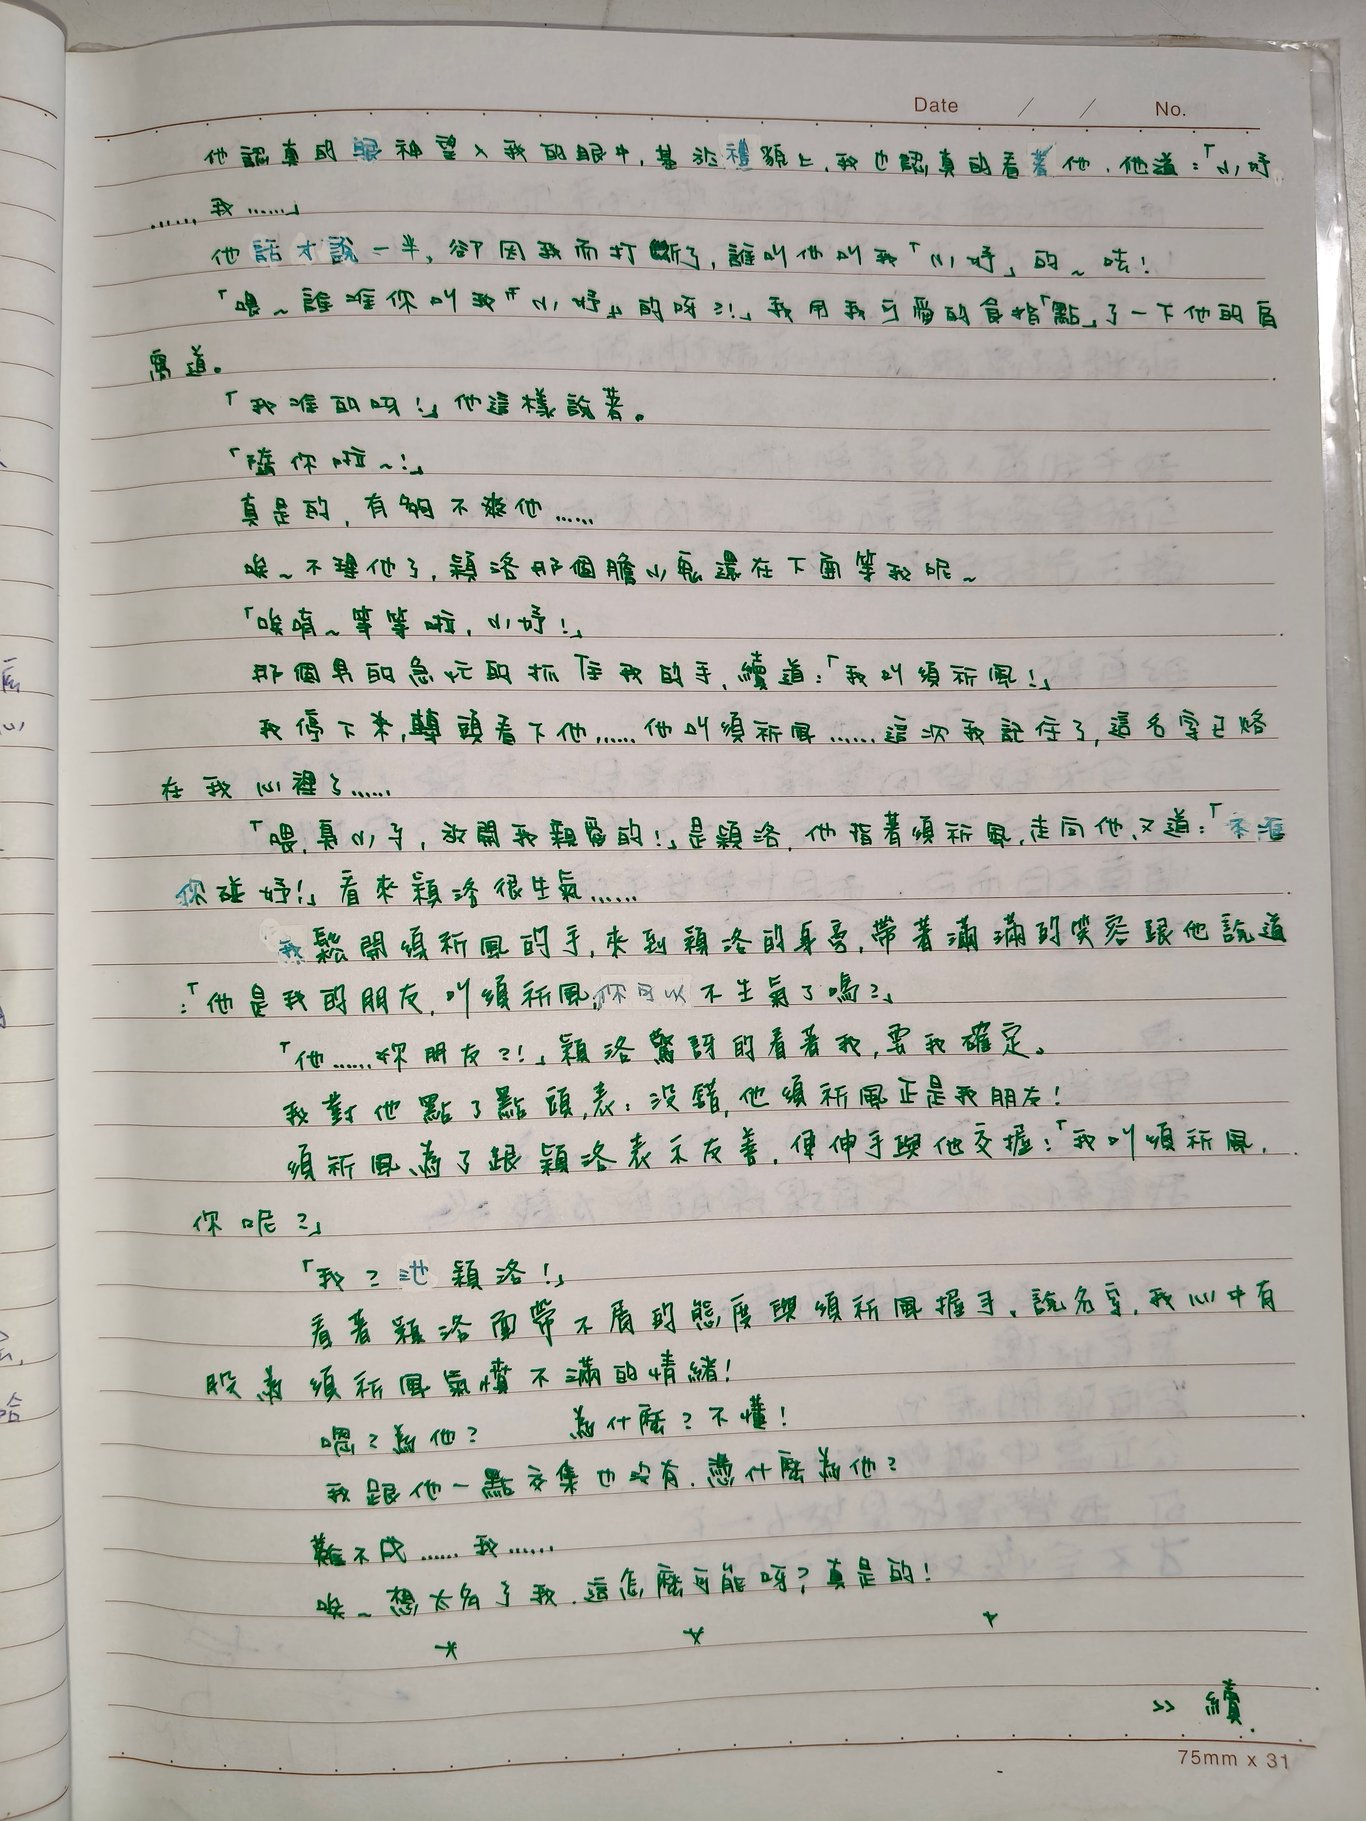 Date / / No.
他認真的眼神望入我的眼中,基於禮貌上,我也認真的看著他,他道:「小妤
……我……」
他話才說一半,卻因我而打斷了,誰叫他叫我「小妤」的~哇!
「喂~誰准你叫我『小妤』的呀?!」我用我可愛的食指「點」了一下他的肩
窩道。
「我准的呀!」他這樣說著。
「隨你啦~!」
真是的,有夠不爽他……
唉~不理他了,穎洛那個膽小鬼還在下面等我呢~
「唉唷~等等啦,小妤!」
那個男的急忙的抓住我的手,續道:「我叫須祈風!」
我停下來,轉頭看下他……他叫須祈風……這次我記住了,這名字已烙
在我心裡了……
「喂,臭小子,放開我親愛的!」是穎洛,他指著須祈風,走向他,又道:「不准
你碰妤!」看來穎洛很生氣……
我鬆開須祈風的手,來到穎洛的身旁,帶著滿滿的笑容跟他說道
:「他是我的朋友,叫須祈風,你可以不生氣了嗎?」
「他……妳朋友?!」穎洛驚訝的看著我,要我確定。
我對他點了點頭,表:沒錯,他須祈風正是我朋友!
須祈風為了跟穎洛表示友善,便伸手與他交握:「我叫須祈風,
你呢?」
「我?池穎洛!」
看著穎洛面帶不屑的態度與須祈風握手、說名字,我心中有
股為須祈風氣憤不滿的情緒!
嗯?為他? 為什麼?不懂!
我跟他一點交集也沒有,憑什麼為他?
難不成……我……
唉~想太多了我,這怎麼可能呀?真是的!
* * *
>> 續.
75mm x 31